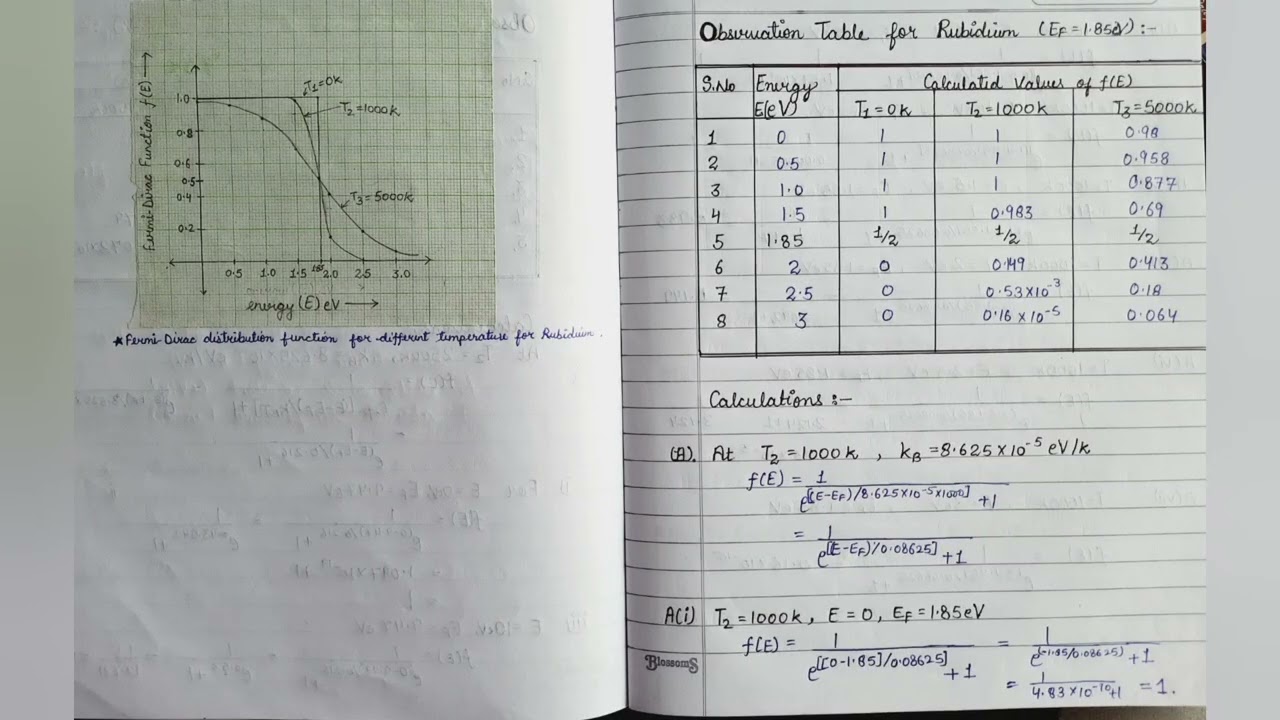 Fermi-Dirac Function f(E) →
1.0
0.8
0.6
0.5
0.4
0.2
T₁=0k
T₂=1000k
T₃=5000k
0.5 1.0 1.5 1.85 2.0 2.5 3.0
energy (E) eV →
★ Fermi-Dirac distribution function for different temperature for Rubidium.
Observation Table for Rubidium (EF=1.85eV):-
S.No Energy Calculated Values of f(E)
E(eV) T₁=0k T₂=1000k T₃=5000k
1 0 1 1 0.98
2 0.5 1 1 0.958
3 1.0 1 1 0.877
4 1.5 1 0.983 0.69
5 1.85 1/2 1/2 1/2
6 2 0 0.149 0.413
7 2.5 0 0.53×10⁻³ 0.18
8 3 0 0.16×10⁻⁵ 0.064
Calculations :-
(A). At T₂=1000k , kB=8.625×10⁻⁵ eV/k
f(E) = 1/e^[(E-EF)/8.625×10⁻⁵×1000] +1
= 1/e^[(E-EF)/0.08625] +1
A(i) T₂=1000k, E=0, EF=1.85eV
f(E) = 1/e^[[0-1.85]/0.08625] +1 = 1/e^(-1.85/0.08625) +1
= 1/4.83×10⁻¹⁰+1 = 1.
BlossomS